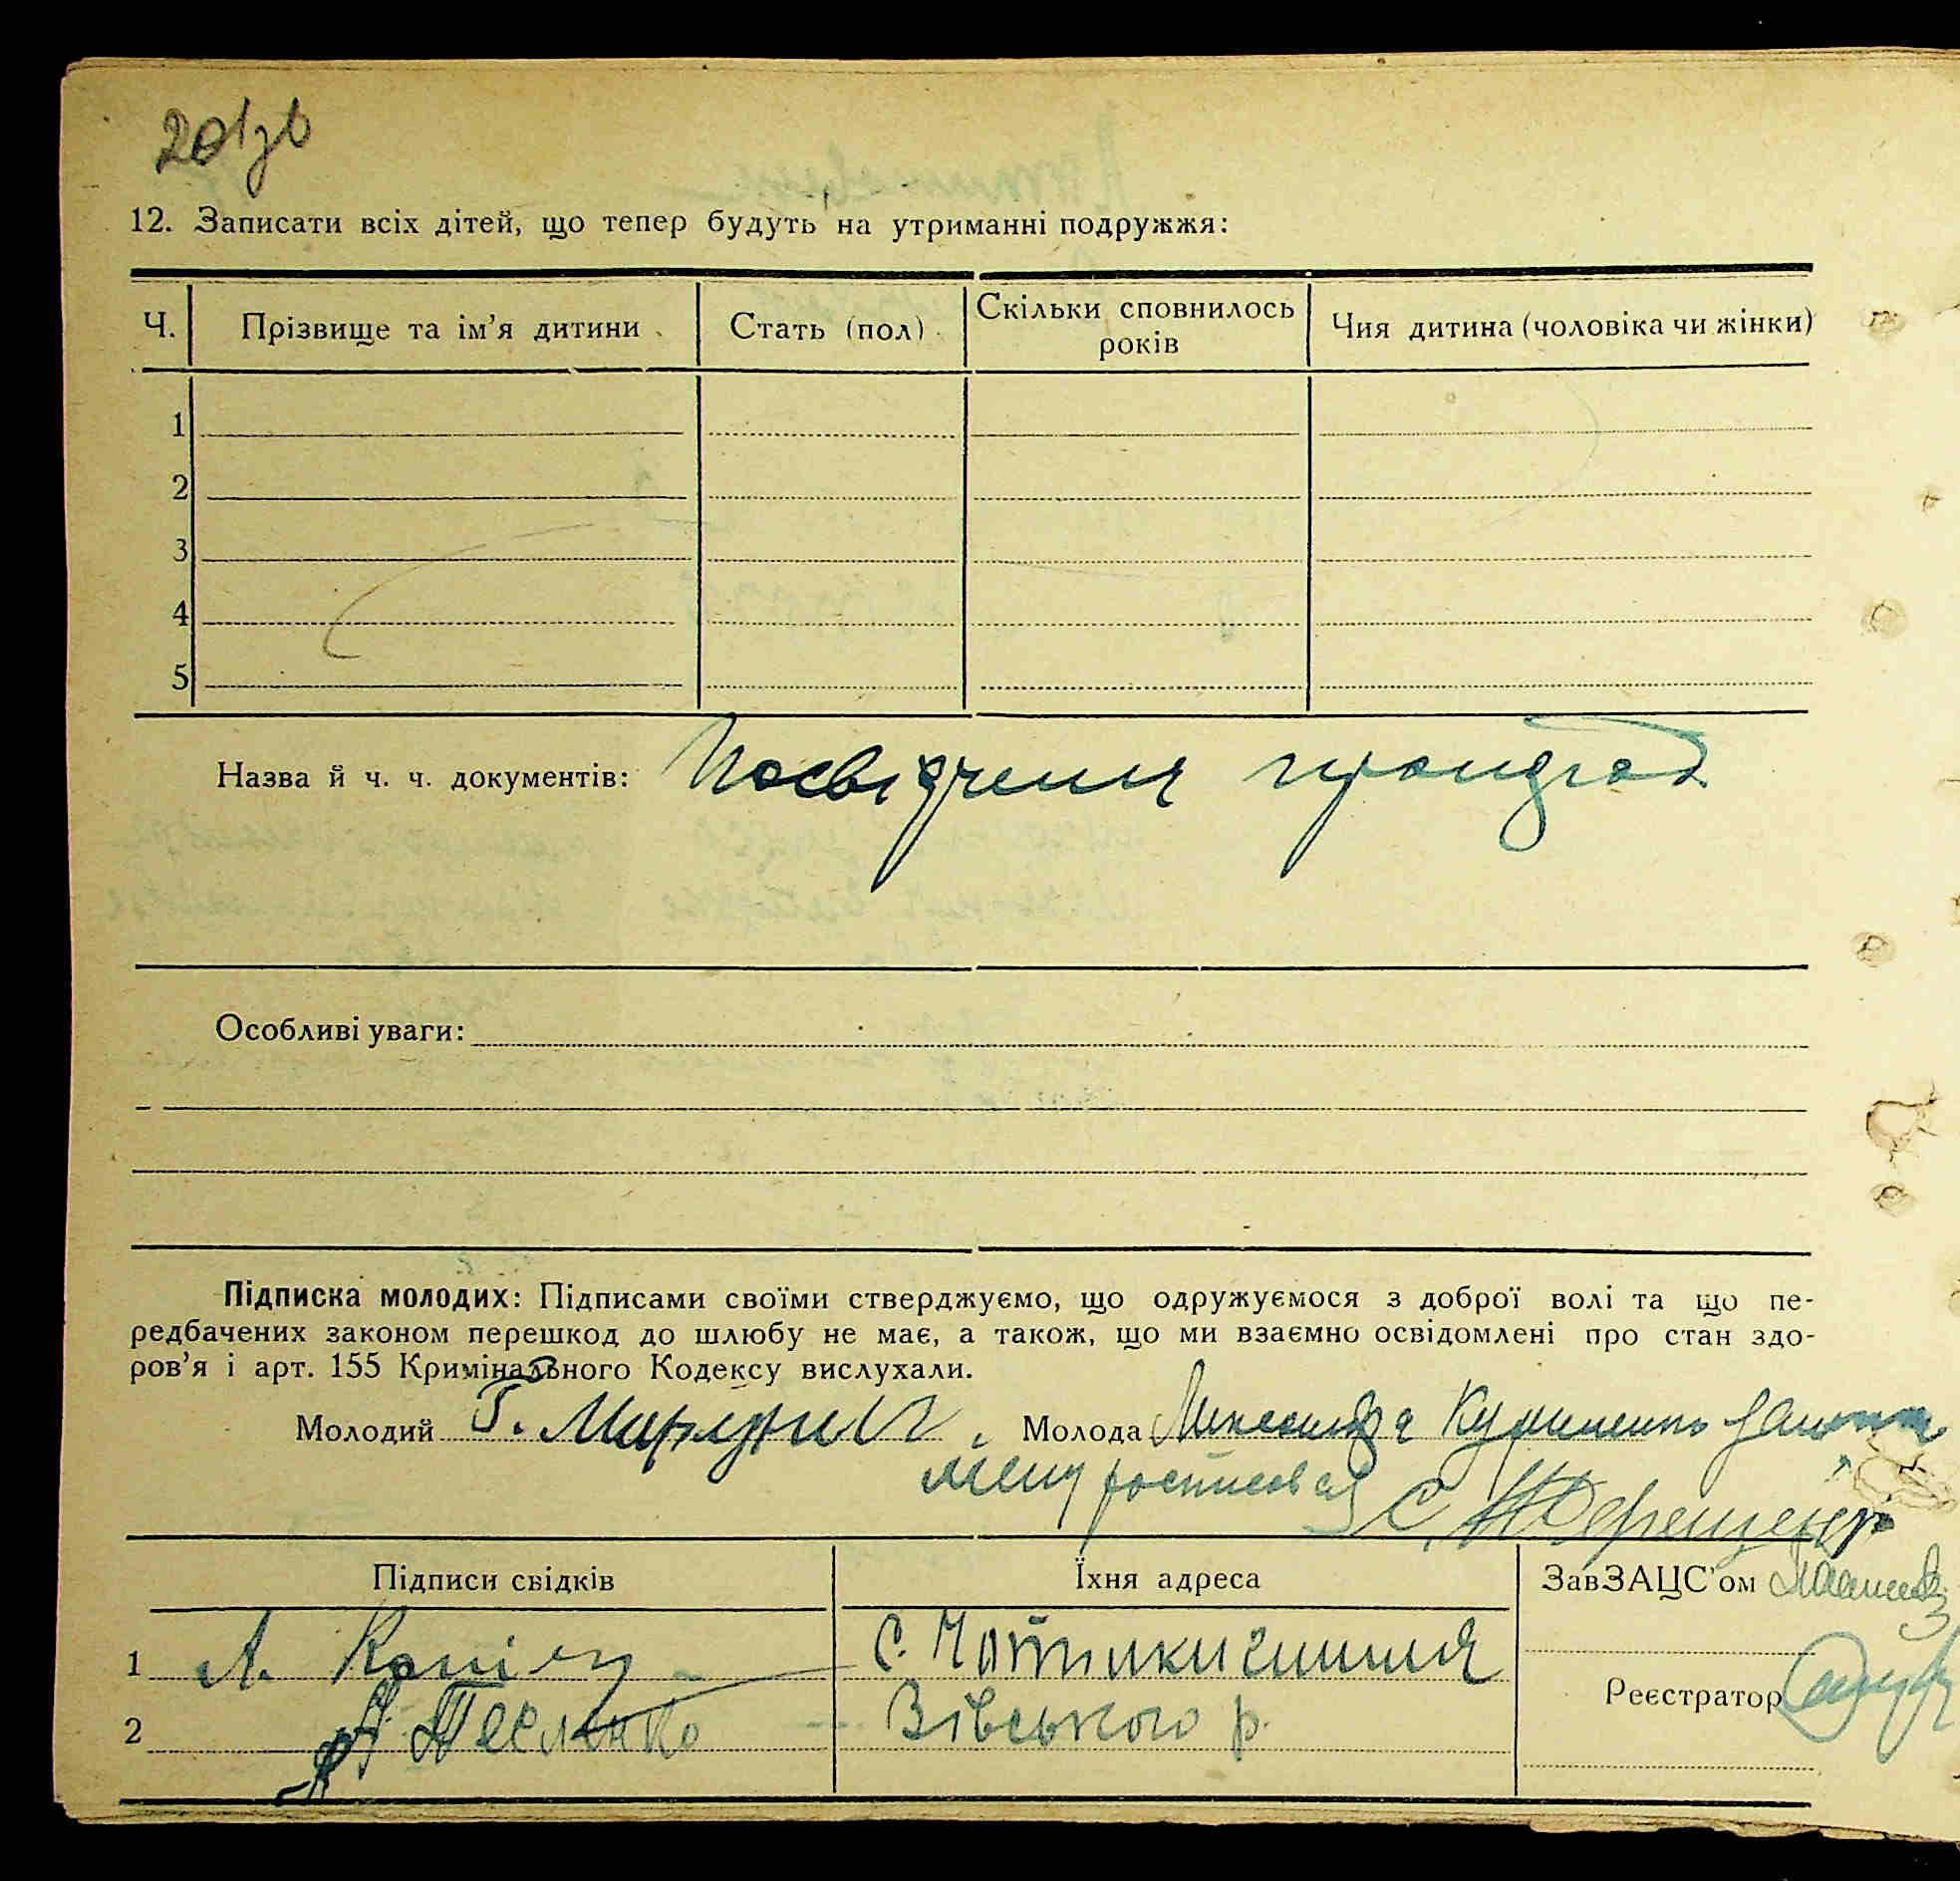 201зв
12. Записати всіх дітей, що тепер будуть на утриманні подружжя:
Ч. Прізвище та ім’я дитини Стать (пол) Скільки сповнилось років Чия дитина (чоловіка чи жінки)
1
2
3
4
5
Назва й ч. ч. документів: Посвідчення
Особливі уваги:
Підписка молодих: Підписами своїми стверджуємо, що одружуємося з доброї волі та що пе-
редбачених законом перешкод до шлюбу не має, а також, що ми взаємно освідомлені про стан здо-
ров’я і арт. 155 Кримінального Кодексу вислухали.
Молодий Г. Молода
Підписи свідків Їхня адреса ЗавЗАЦС’ом
1 А. с.
2 А. Тесленко р.
Реєстратор